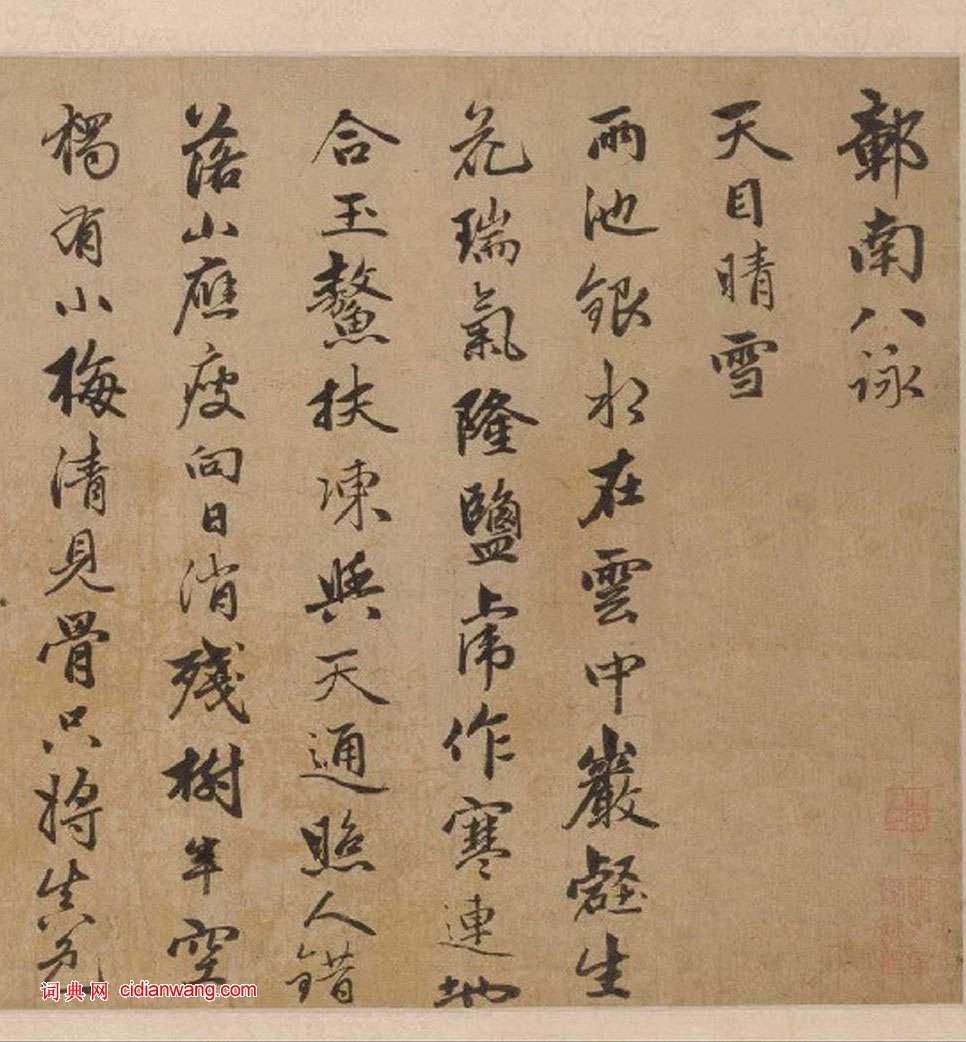 鄣南八詠
天目晴雪
兩池銀水在雲中巖壑生
花瑞氣隆鹽虎作寒連地
合玉鰲扶凍與天通照人錯
落山應瘦向日消殘樹半空
獨有小梅清見骨只將
词典网 cidianwang.com